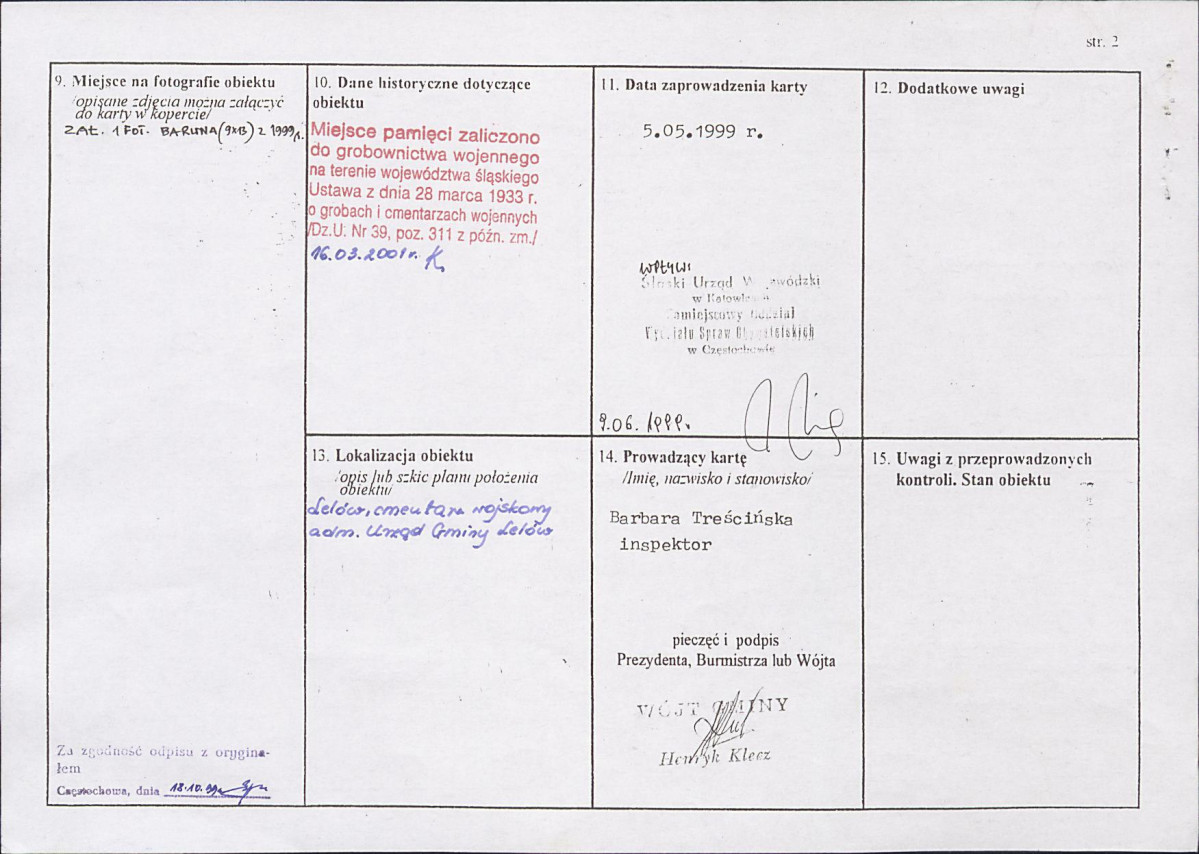 str. 2
9. Miejsce na fotografie obiektu
/opisane zdjęcia można załączyć
do karty w kopercie/
ZAŁ. 1 FOT. BARWNA (9x13) z 1999 r.
10. Dane historyczne dotyczące
obiektu
Miejsce pamięci zaliczono
do grobownictwa wojennego
na terenie województwa śląskiego
Ustawa z dnia 28 marca 1933 r.
o grobach i cmentarzach wojennych
/Dz.U. Nr 39, poz. 311 z późn. zm./
16.03.2001 r.
11. Data zaprowadzenia karty
5.05.1999 r.
Śląski Urząd Wojewódzki
w Katowicach
Zamiejscowy Oddział
Wydziału Spraw Obywatelskich
w Częstochowie
9.06.1999r.
12. Dodatkowe uwagi
13. Lokalizacja obiektu
/opis lub szkic planu położenia
obiektu/
Lelów, cmentarz wojskowy
adm. Urząd Gminy Lelów
14. Prowadzący kartę
/Imię, nazwisko i stanowisko/
Barbara Treścińska
inspektor
pieczęć i podpis
Prezydenta, Burmistrza lub Wójta
WÓJT GMINY
Henryk Klecz
15. Uwagi z przeprowadzonych
kontroli. Stan obiektu
Za zgodność odpisu z orygina-
łem
Częstochowa, dnia 18.10.99